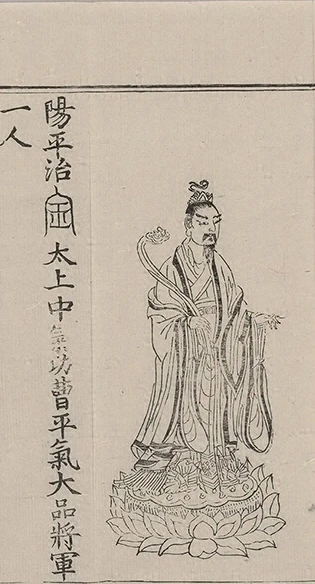 陽平治太上中曹平氣大品將軍
一人